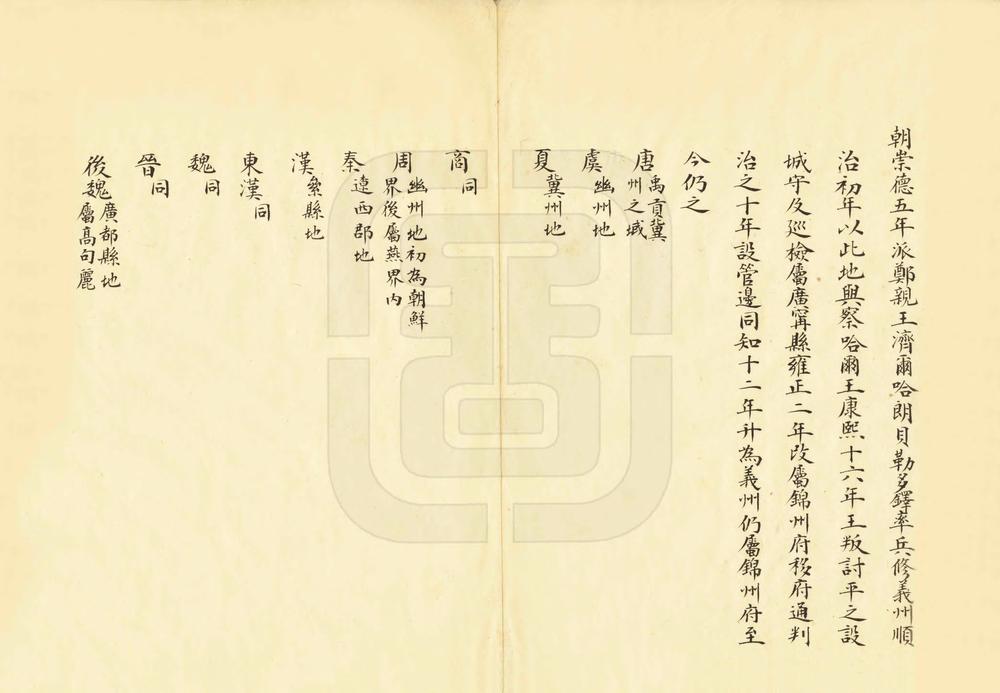 朝崇德五年派鄭親王濟爾哈朗貝勒多鐸率兵修義州順
治初年以此地與察哈爾王康熙十六年王叛討平之設
城守及巡檢屬廣寗縣雍正二年改屬錦州府移府通判
治之十年設管邊同知十二年升為義州仍屬錦州府至
今仍之
唐禹貢冀
州之域
虞幽州地
夏冀州地
商同
周幽州地初為朝鮮
界後屬燕界內
秦遼西郡地
漢絫縣地
東漢同
魏同
晉同
後魏廣都縣地
屬高句麗